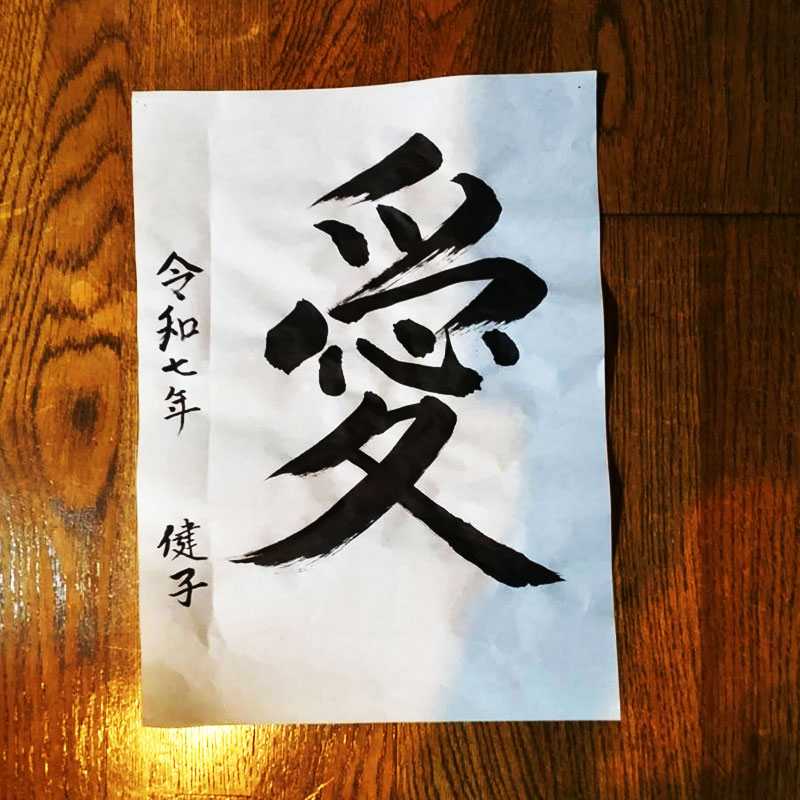 愛
令和七年
健子